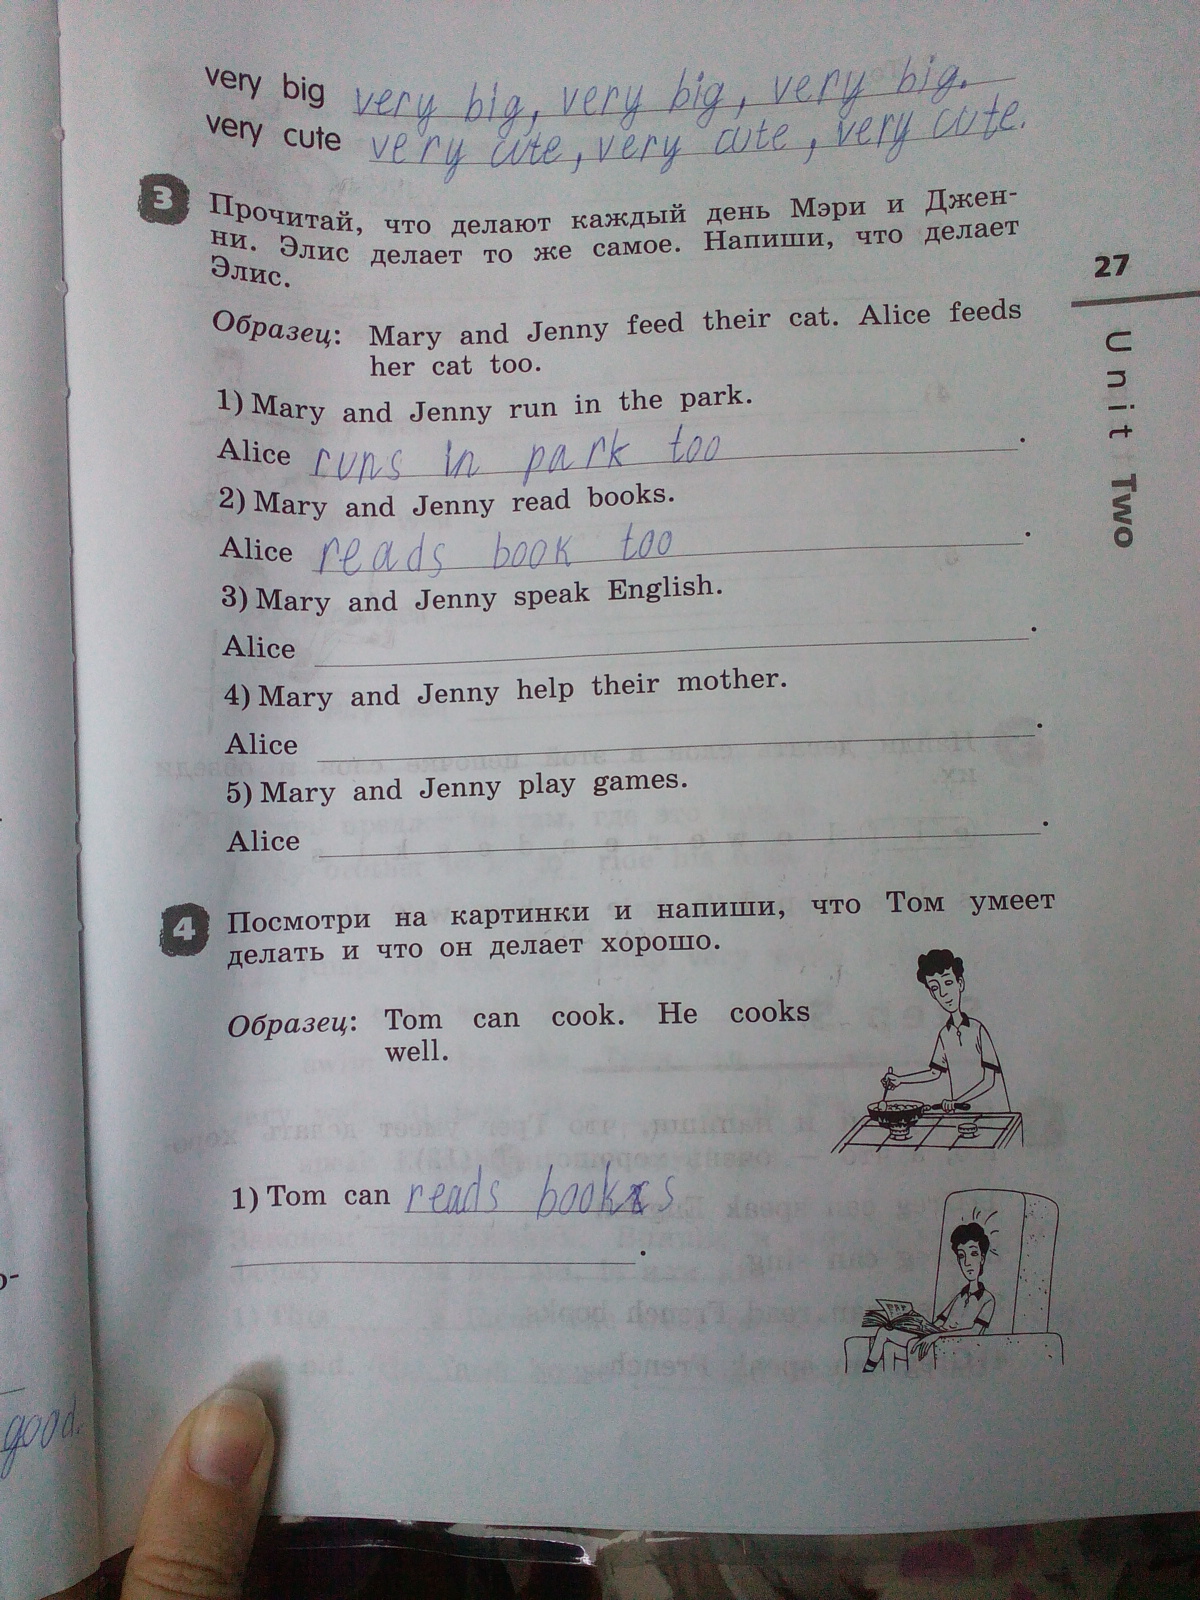 very big very big, very big, very big.
very cute very cute, very cute, very cute.
3 Прочитай, что делают каждый день Мэри и Джен-
ни. Элис делает то же самое. Напиши, что делает
Элис.
27
Unit Two
Образец: Mary and Jenny feed their cat. Alice feeds
her cat too.
1) Mary and Jenny run in the park.
Alice runs in park too.
2) Mary and Jenny read books.
Alice reads book too.
3) Mary and Jenny speak English.
Alice .
4) Mary and Jenny help their mother.
Alice .
5) Mary and Jenny play games.
Alice .
4 Посмотри на картинки и напиши, что Том умеет
делать и что он делает хорошо.
Образец: Tom can cook. He cooks
well.
1) Tom can reads books
.
good.